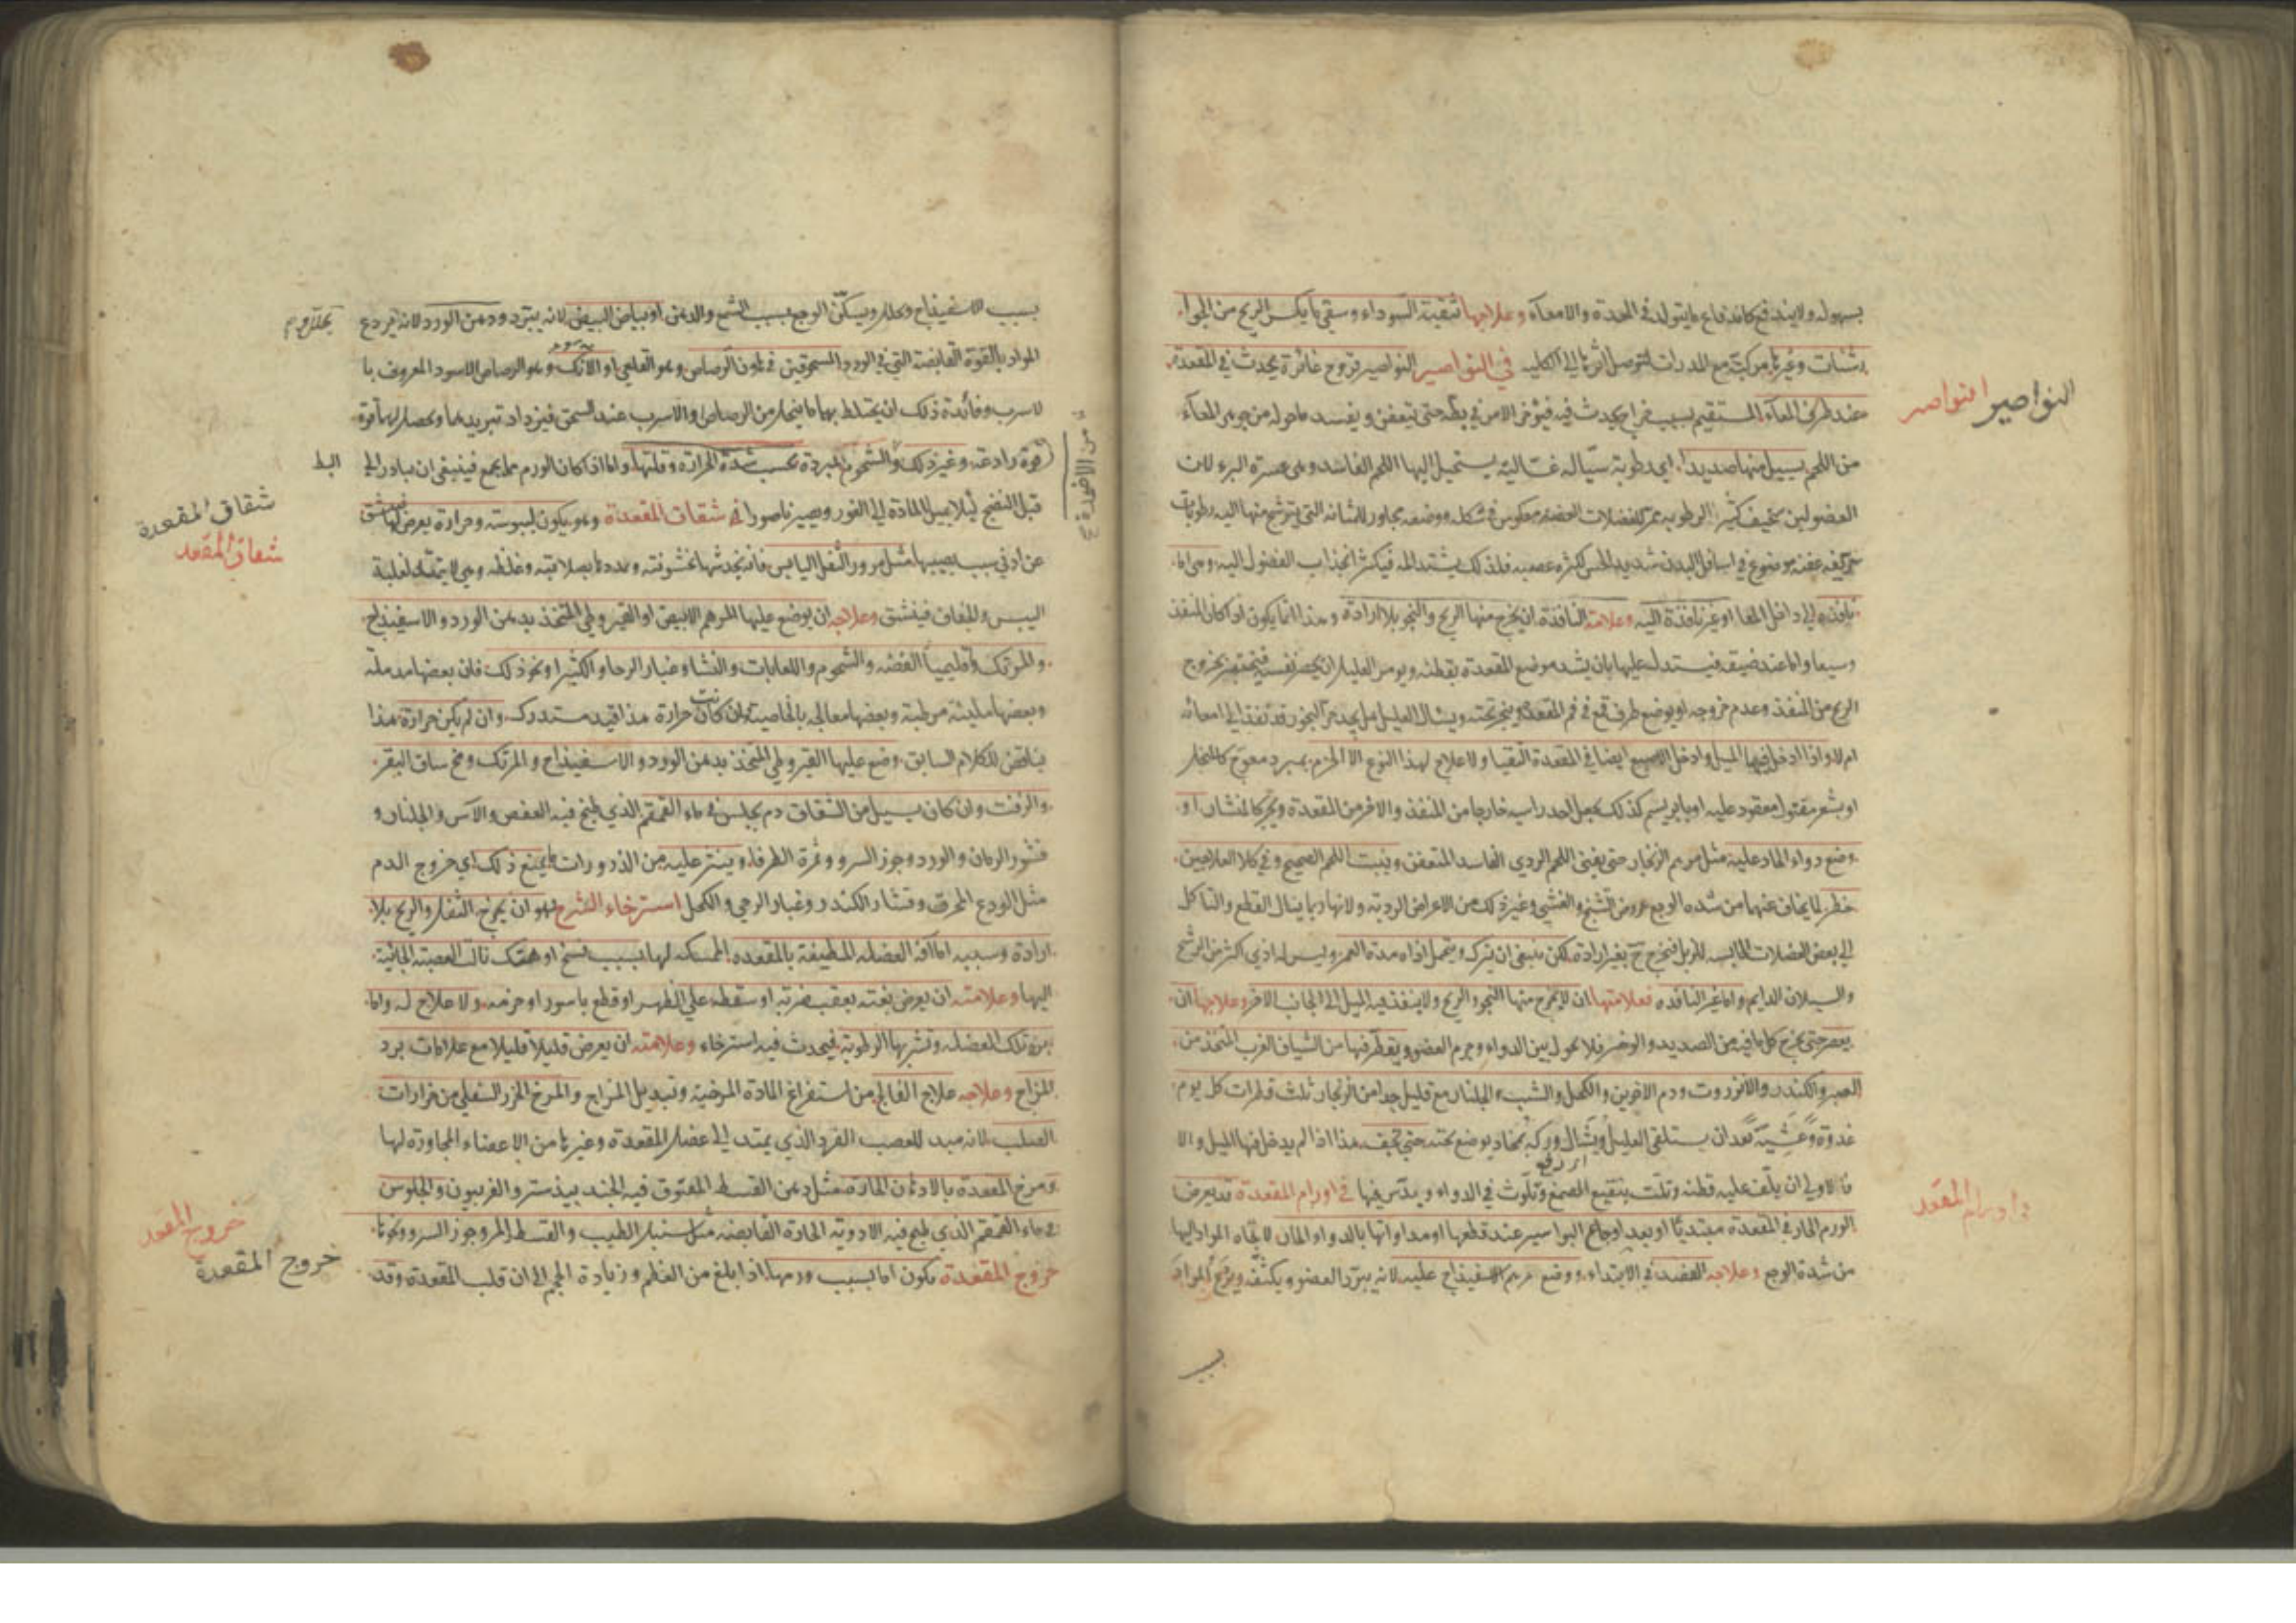 بسهوله ولا يندفع كاندفاع ما يتولد في المعدة والامعآء وعلاجها تنقية السوداء وسقي ما يكسر الريح من الجوار
شنات وغيرها مركبة مع المدرات لتوصل اثرها الى الكليه في النواصير النواصير قروح غائرة يحدث في المقعدة
النواصير النواصر
عند طرف المعآء المستقيم بسبب خراج يحدث فيه فيؤخر الامر في بطه حتى يتعفن ويفسد ما حوله من جوهر المعآء
من اللحم يسيل منها صديد اي رطوبة سيّاله غسّاليه يستحيل اليها اللحم الفاسد وهى عسرة البرء لان
العضو لين سخيف كثير الرطوبه ممر للفضلات العضيه معكوس في شكله ووضعه مجاور للمثانه التي يترشح منها اليه رطوبات
عفنه موضوع في اسافل البدن شديد الحس لكثره عصبه فلذلك يشتد المه فيكثر انجذاب الفضول اليه وهى اما
نافذه الى داخل المعا او غير نافذة اليه وعلامة النافذة ان يخرج منها الريح والنجو بلا ارادة وهذا انما يكون اذا كان المنفذ
وسيعا واما عند ضيقه فيستدل عليها بان يشد موضع المقعدة بقطنه ويومر العليل ان يحصر نفسه فيخبر بخروج
الريح من المنفذ وعدم خروجه او يوضع طرف قمع في فم المقعدة ويبخر تحته ويسال العليل هل يجد حر البخور قد نفذ الى امعائه
ام لا واذا ادخل فيها الميل وادخل الاصبع ايضا في المقعدة التقيا ولا علاج لهذا النوع الا الخزم بمبرد معوج كالمنجل
او بشعر مفتول معقود عليه او بابريسم كذلك يجعل احد راسيه خارجا من المنفذ والاخر من المقعدة ويجر كالمنشار او
وضع دواء الحاد عليه مثل مرهم الزنجار حتى يفنى اللحم الردي الفاسد المتعفن وينبت اللحم الصحيح وفي كلا العلاجين
خطر لما يخاف عنهما من شده الوجع عروض التشنج والغشي وغير ذلك من الاعراض الرديه ولانها ربما ينال القطع والتاكل
الى بعض العضلات الحابسه للزبل فيخرج ح بغير ارادة لكن ينبغي ان يترك ويتحمل اذاه مدة العمر وليس له اذى اكثر من الرشح
والسيلان الدايم واما غير النافذه فعلامتها ان لا يخرج منها النجو والريح ولا ينفذ فيه الميل الى الجانب الاخر وعلاجها ان
يعصر حتى يخرج كل ما فيه من الصديد والوضر فلا يحول بين الدواء وجرم العضو ويقطر فيها من الشياف الغرب المتخذ من
الصبر والكندر والانزروت ودم الاخوين والكحل والشب والجلنار مع قليل جدا من الزنجار ثلث قطرات كل يوم
غدوة وعشية بعد ان يستلقى العليل ويشال وركه بمخاد يوضع تحته حتى يجف هذا اذا لم يدخل فيها الميل والا
اى رفع
فالاولى ان يلف عليه قطنه وتلت بنقيع الصمغ وتلوث في الدواء ويدس فيها في اورام المقعدة قد يعرض
في اورام المقعد
الورم الحار في المقعدة مبتديًا او بعد اوجاع البواسير عند قطعها او مداواتها بالدواء الحاد لاتجاه المواد اليها
من شدة الوجع وعلاجه الفصد في الابتداء ووضع مرهم الاسفيذاج عليه لانه يبرد العضو ويكثفه ويردع المواد
بسبب
بسبب الاسفيذاج وتحلل ويسكّن الوجع بسبب الشمع والدهن او بياض البيض لانه يبترد ودهن الورد لانه يردع
المواد بالقوة القابضة التي في الورد المسحوقين في هاون الرصاص وهو القلعى او الآنك وهو الرصاص الاسود المعروف با
لاسرب وفائدة ذلك ان يختلط بهما ما ينحل من الرصاص او الاسرب عند السحق فيزداد تبريدهما ويحصل لهما قوة
قوة رادعة وغير ذلك والشحوم المبردة بحسب شدة الحرارة وقلتها واما ان كان الورم مما يجمع فينبغي ان يبادر الى البط
من الادوية
قبل النضج ليلا يميل المادة الى الغور ويصير ناصورا في شقاق المقعدة وهو يكون ليبوسة وحرارة يعرض لها فينشق
شقاق المقعدة
شقاق المقعد
عن ادنى سبب يصيبها مثل مرور الثفل اليابس فانه يخدشها بخشونته ويمددها بصلابته وغلظه وهي لا يتمدد لغلبة
اليبس والجفاف فينشق وعلاجه ان يوضع عليها المرهم الابيض او القيروطى المتخذ بدهن الورد والاسفيذاج
والمرتك واقليميا الفضه والشحوم واللعابات والنشا وغبار الرحا والكثيرا ونحو ذلك فان بعضها مدملة
وبعضها ملينة مرطبة وبعضها معالجه بالخاصية ان كانت حرارة هذا قيد مستدرك وان لم يكن حرارة هذا
يناقض للكلام السابق وضع عليها القيروطي المتخذ بدهن الورد والاسفيذاج والمرتك ومخ ساق البقر
والزفت وان كان يسيل من الشقاق دم يجلس في ماء القمقم الذي طبخ فيه العفص والآس والجلنار و
قشور الرمان والورد وجوز السرو وثمرة الطرفاء وينثر عليه من الذرورات ما يمنع ذلك اي خروج الدم
مثل الودع المحرق وقشار الكندر وغبار الرحي والكحل استرخاء الشرج هو ان يخرج الثفل والريح بلا
ارادة وسببه اما آفة العضله المطيفة بالمقعده الممسكه لها بسبب فسخ او هتك نالت العصبة الجائية
اليها وعلامته ان يعرض بغته بعقب ضربه او سقطه على الظهر او قطع باسور او خرمه ولا علاج له واما
برد تلك العضله وتشربها الرطوبة فيحدث فيها استرخاء وعلامته ان يعرض قليلا قليلا مع علامات برد
المزاج وعلاجه علاج الفالج من استفراغ المادة المرخية وتبديل المزاج والمرخ الخرز السفلى من خرزات
الصلب لانه مبد للعصب الفرد الذي يمتد الى عضل المقعدة وغيرها من الاعضاء المجاورة لها
ومرخ المقعدة بالادهان الحارة مثل دهن القسط المفتوق فيه الجندبيذستر والفربيون والجلوس
في ماء القمقم الذي طبخ فيه الادوية الحادة القابضه مثل سنبل الطيب والقسط المر وجوز السرو ونحوها
خروج المقعد
خروج المقعدة
خروج المقعدة يكون اما بسبب ورمها اذا بلغ من العظم وزيادة الحجم الى ان قلب المقعدة وقد